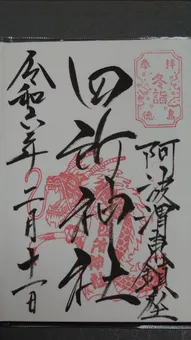 奉拝
冬詣
徳島
阿波渭東鎮座
四所神社
令和六年二月十一日